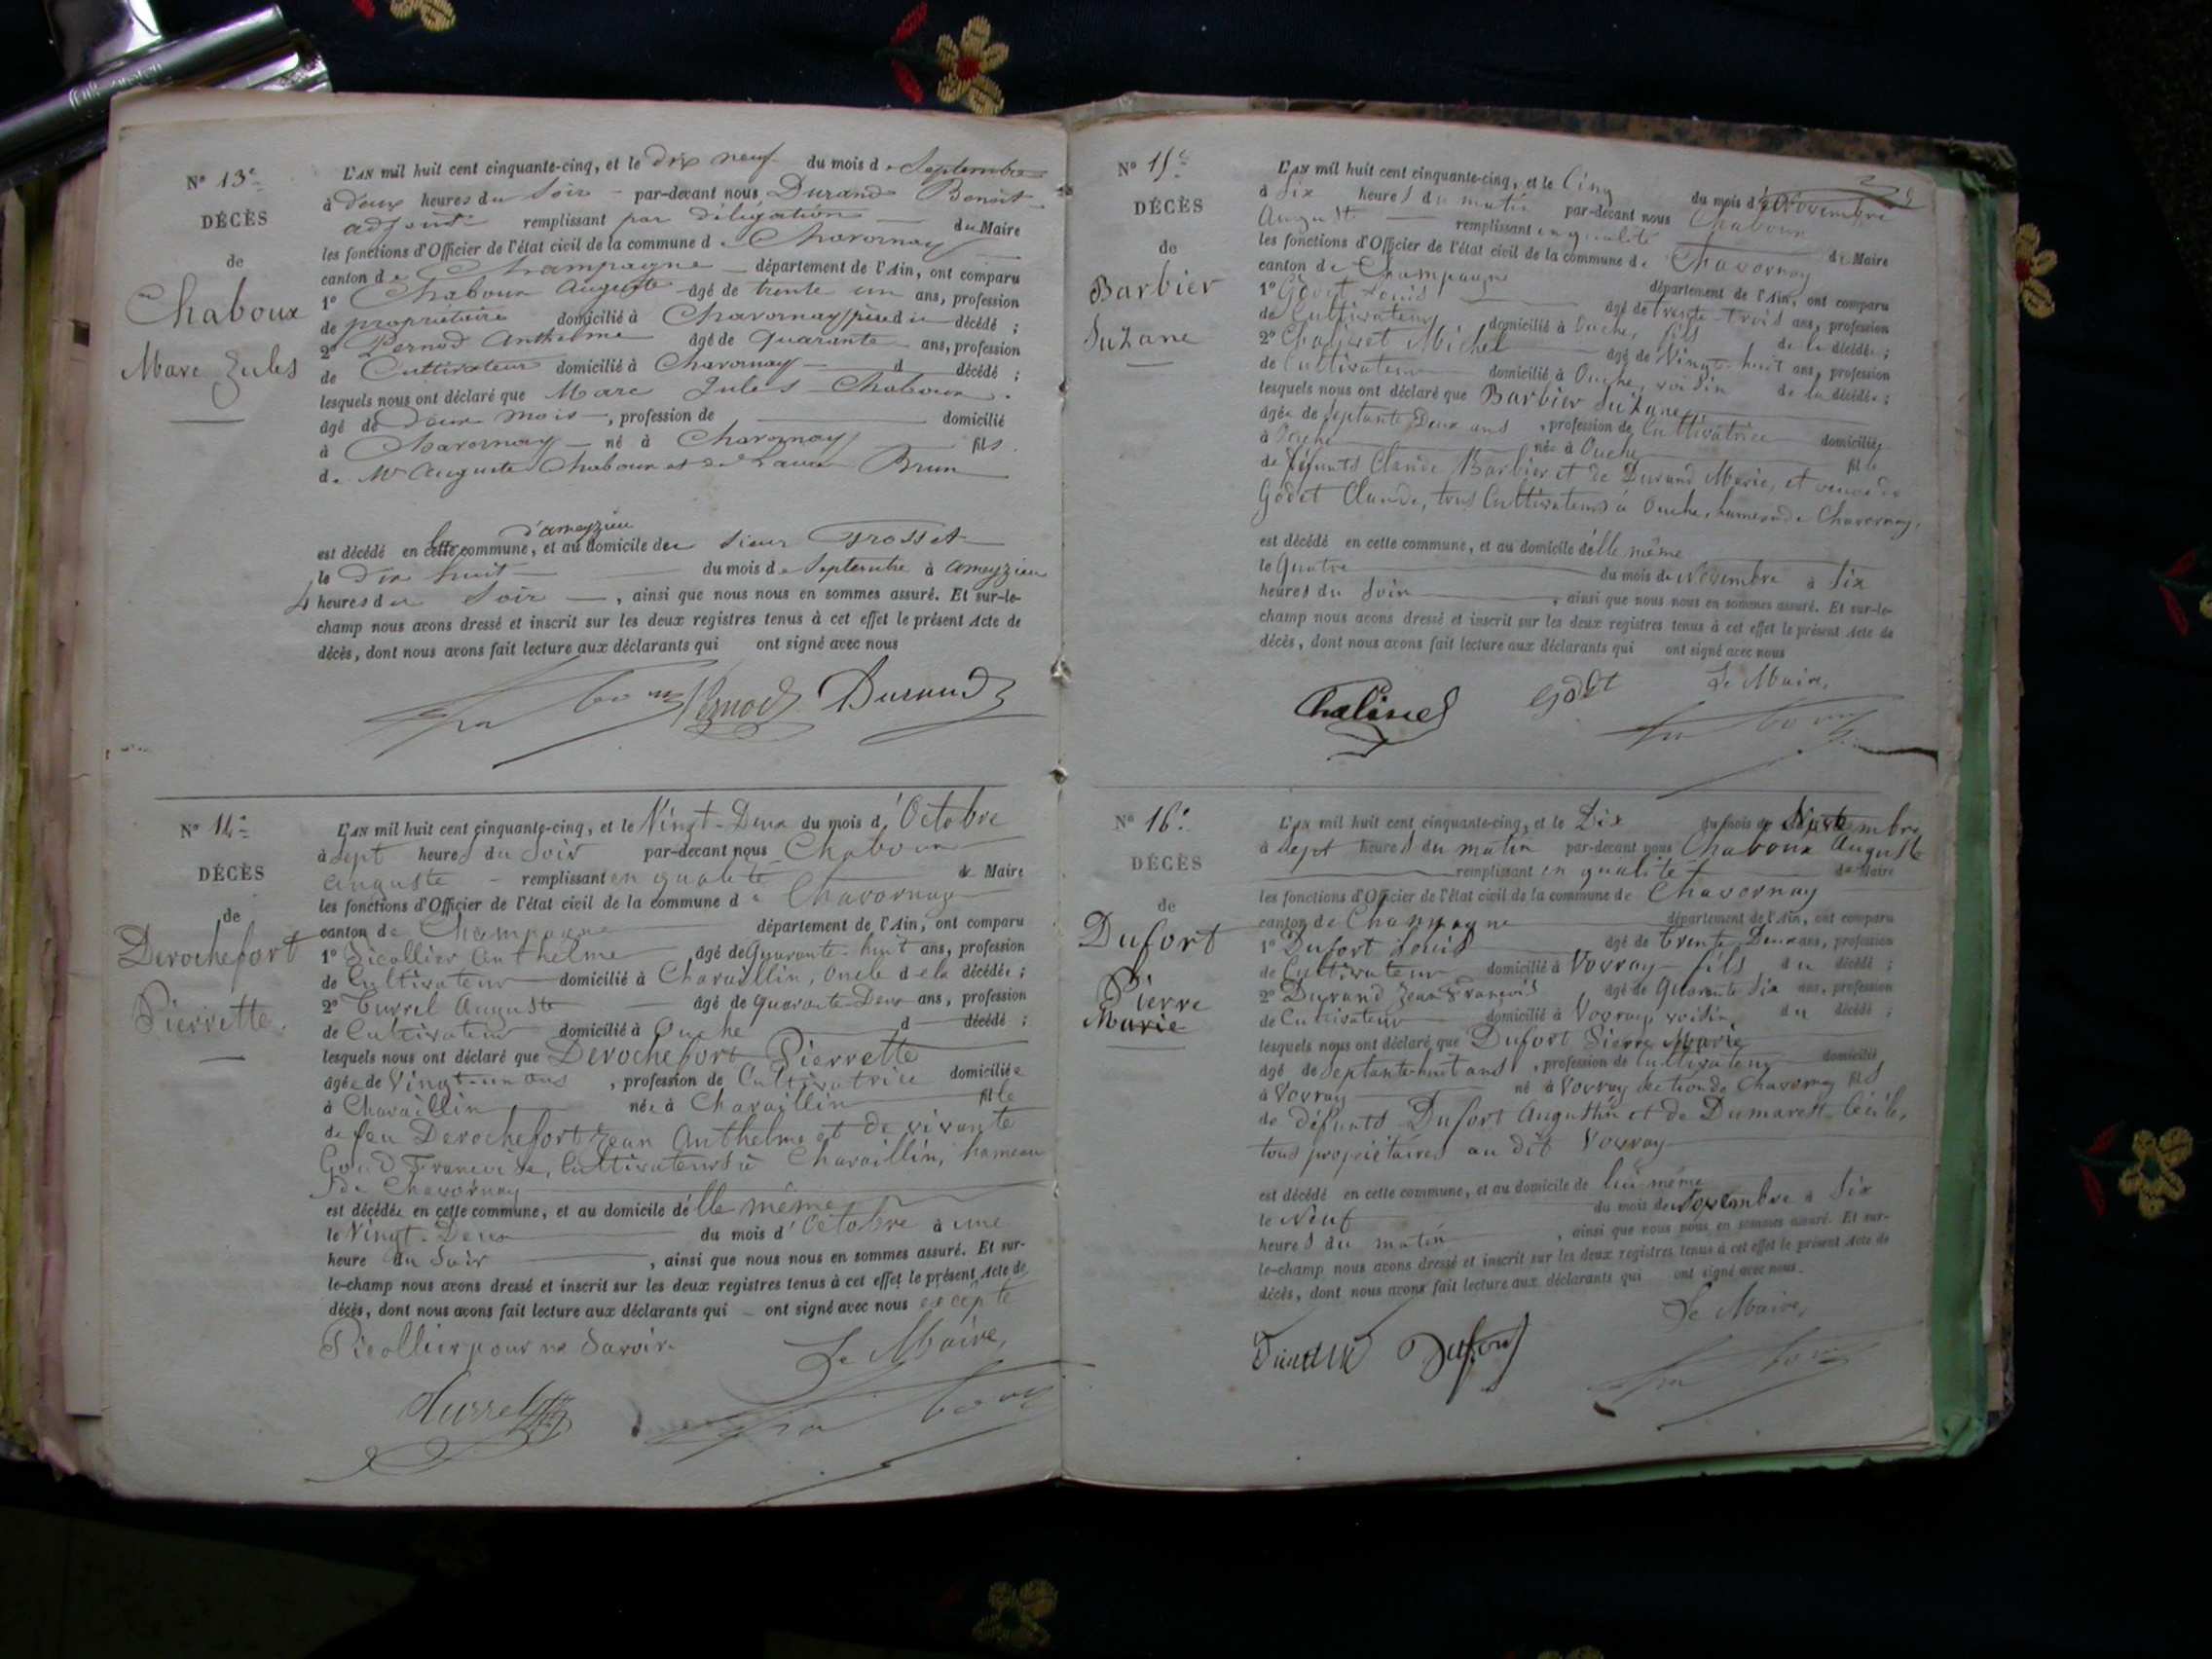 N° 13e
DÉCÈS
de
Chaboux
Marc Jules
L'AN mil huit cent cinquante-cinq, et le dix neuf du mois de Septembre
à deux heures du soir par-devant nous Durand Benoit
adjoint remplissant par délégation du Maire
les fonctions d'Officier de l'état civil de la commune de Chavornay
canton de Champagne département de l'Ain, ont comparu
1° Chaboux Auguste âgé de trente un ans, profession
de propriétaire domicilié à Chavornay père du décédé ;
2° Pernod Anthelme âgé de quarante ans, profession
de Cultivateur domicilié à Chavornay d décédé ;
lesquels nous ont déclaré que Marc Jules Chaboux
âgé de deux mois, profession de domicilié
à Chavornay né à Chavornay fils
de Mr Auguste Chaboux et de Laure Brun
d'ameyzieu
est décédé en cette commune, et au domicile du sieur Trosset
le Dix huit du mois de Septembre à ameyzieu
4 heures du Soir, ainsi que nous nous en sommes assuré. Et sur-le-
champ nous avons dressé et inscrit sur les deux registres tenus à cet effet le présent Acte de
décès, dont nous avons fait lecture aux déclarants qui ont signé avec nous
Chaboux Pernod Durand
N° 14e
DÉCÈS
de
Derochefort
Pierrette
L'AN mil huit cent cinquante-cinq, et le Vingt-Deux du mois d'Octobre
à Sept heures du Soir par-devant nous Chaboux
Auguste remplissant en qualité de Maire
les fonctions d'Officier de l'état civil de la commune de Chavornay
canton de Champagne département de l'Ain, ont comparu
1° Picollier Anthelme âgé de Quarante-huit ans, profession
de Cultivateur domicilié à Charaillin, Oncle de la décédée ;
2° Turrel Auguste âgé de Quarante-Deux ans, profession
de Cultivateur domicilié à Ouche d décédé ;
lesquels nous ont déclaré que Derochefort Pierrette
âgée de Vingt-un ans, profession de Cultivatrice domiciliée
à Charaillin née à Charaillin fille
de feu Derochefort Jean Anthelme et de vivante
Goud Françoise, Cultivateurs à Charaillin, hameau
de Chavornay
est décédée en cette commune, et au domicile d'elle même
le Vingt-Deux du mois d'Octobre à une
heure du Soir, ainsi que nous nous en sommes assuré. Et sur-
le-champ nous avons dressé et inscrit sur les deux registres tenus à cet effet le présent Acte de
décès, dont nous avons fait lecture aux déclarants qui ont signé avec nous excepté
Picollier pour ne Savoir.
Le Maire,
Turrel Chaboux
N° 15e
DÉCÈS
de
Barbier
Suzane
L'AN mil huit cent cinquante-cinq, et le Cinq du mois de Novembre
à Six heures du matin par-devant nous Chaboux
August remplissant en qualité de Maire
les fonctions d'Officier de l'état civil de la commune de Chavornay
canton de Champagne département de l'Ain, ont comparu
1° Godet Louis âgé de trente-trois ans, profession
de Cultivateur domicilié à Ouche, fils de la décédée ;
2° Chalinet Michel âgé de Vingt-huit ans, profession
de Cultivateur domicilié à Ouche, voisin de la décédée ;
lesquels nous ont déclaré que Barbier Suzane
âgée de Septante Deux ans, profession de Cultivatrice domiciliée
à Ouche née à Ouche fille
de défunts Claude Barbier et de Durand Marie, et veuve de
Godet Claude, tous Cultivateurs à Ouche, hameau de Chavornay,
est décédé en cette commune, et au domicile d'elle même
le Quatre du mois de Novembre à Six
heures du Soir, ainsi que nous nous en sommes assuré. Et sur-le-
champ nous avons dressé et inscrit sur les deux registres tenus à cet effet le présent Acte de
décès, dont nous avons fait lecture aux déclarants qui ont signé avec nous
Le Maire,
Chalinet Godet Chaboux
N° 16e
DÉCÈS
de
Dufort
Pierre
Marie
L'AN mil huit cent cinquante-cinq, et le Dix du mois de Novembre
à Sept heures du matin par-devant nous Chaboux Auguste
remplissant en qualité de Maire
les fonctions d'Officier de l'état civil de la commune de Chavornay
canton de Champagne département de l'Ain, ont comparu
1° Dufort Louis âgé de trente-Deux ans, profession
de Cultivateur domicilié à Vovray fils du décédé ;
2° Durand Jean François âgé de Quarante Six ans, profession
de Cultivateur domicilié à Vovray, voisin du décédé ;
lesquels nous ont déclaré que Dufort Pierre Marie
âgé de Septante-huit ans, profession de Cultivateur domicilié
à Vovray né à Vovray section de Chavornay fils
de défunts Dufort Augustin et de Dumarest Cécile,
tous propriétaires au dit Vovray
est décédé en cette commune, et au domicile de lui même
le Neuf du mois de Novembre à Six
heures du matin, ainsi que nous nous en sommes assuré. Et sur-
le-champ nous avons dressé et inscrit sur les deux registres tenus à cet effet le présent Acte de
décès, dont nous avons fait lecture aux déclarants qui ont signé avec nous.
Le Maire,
Durand Dufort Chaboux